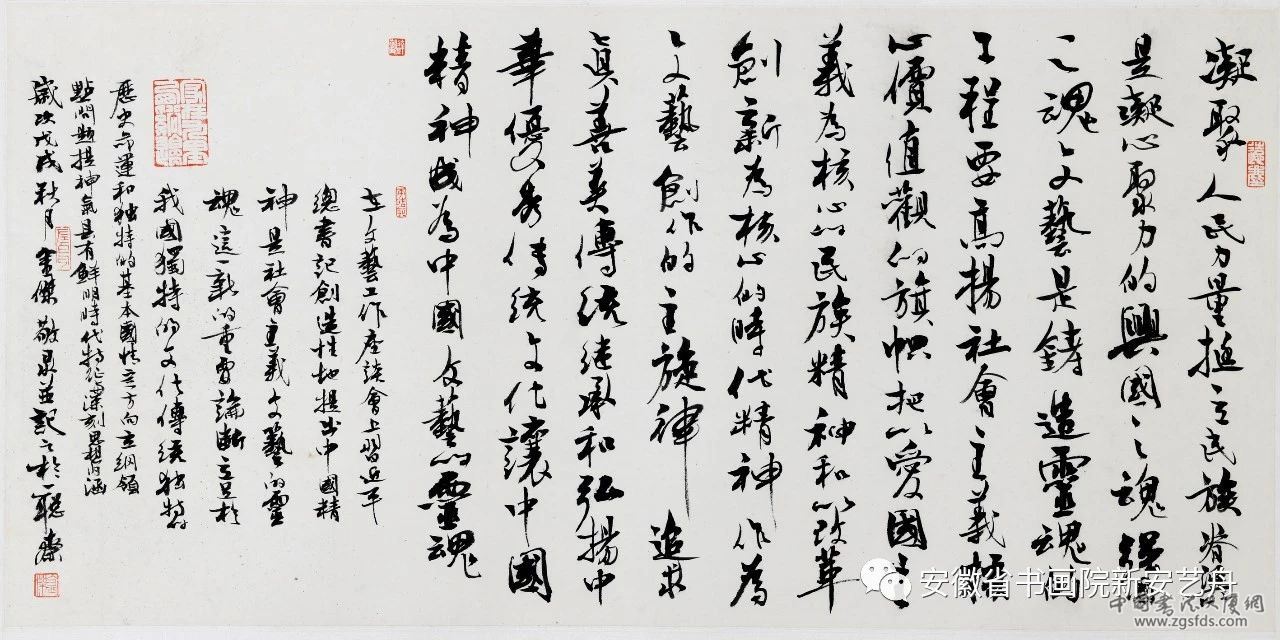 凝聚人民力量挺立民族脊
是凝心聚力的興國之魂強國
之魂文藝是鑄造靈魂的
工程要高揚社會主義核
心價值觀的旗幟把以愛國主
義為核心的民族精神和以改革
創新為核心的時代精神作為
文藝創作的主旋律 追求
真善美傳統继承和弘揚中
華優秀傳統文化讓中國
精神成為中國文藝的靈魂
在文藝工作座談會上習近平
總書記創造性地提出中國精
神是社會主義文藝的靈
魂這一新的重要論斷立足於
我國獨特的文化傳統独特的
歷史命運和独特的基本國情立方向立綱領
點問題提神氣具有鮮明時代特征深刻思想内涵
歲次戊戌秋月 傑敬录並記之於聽齋
安徽省书画院新安艺舟
www.zgsfds.com